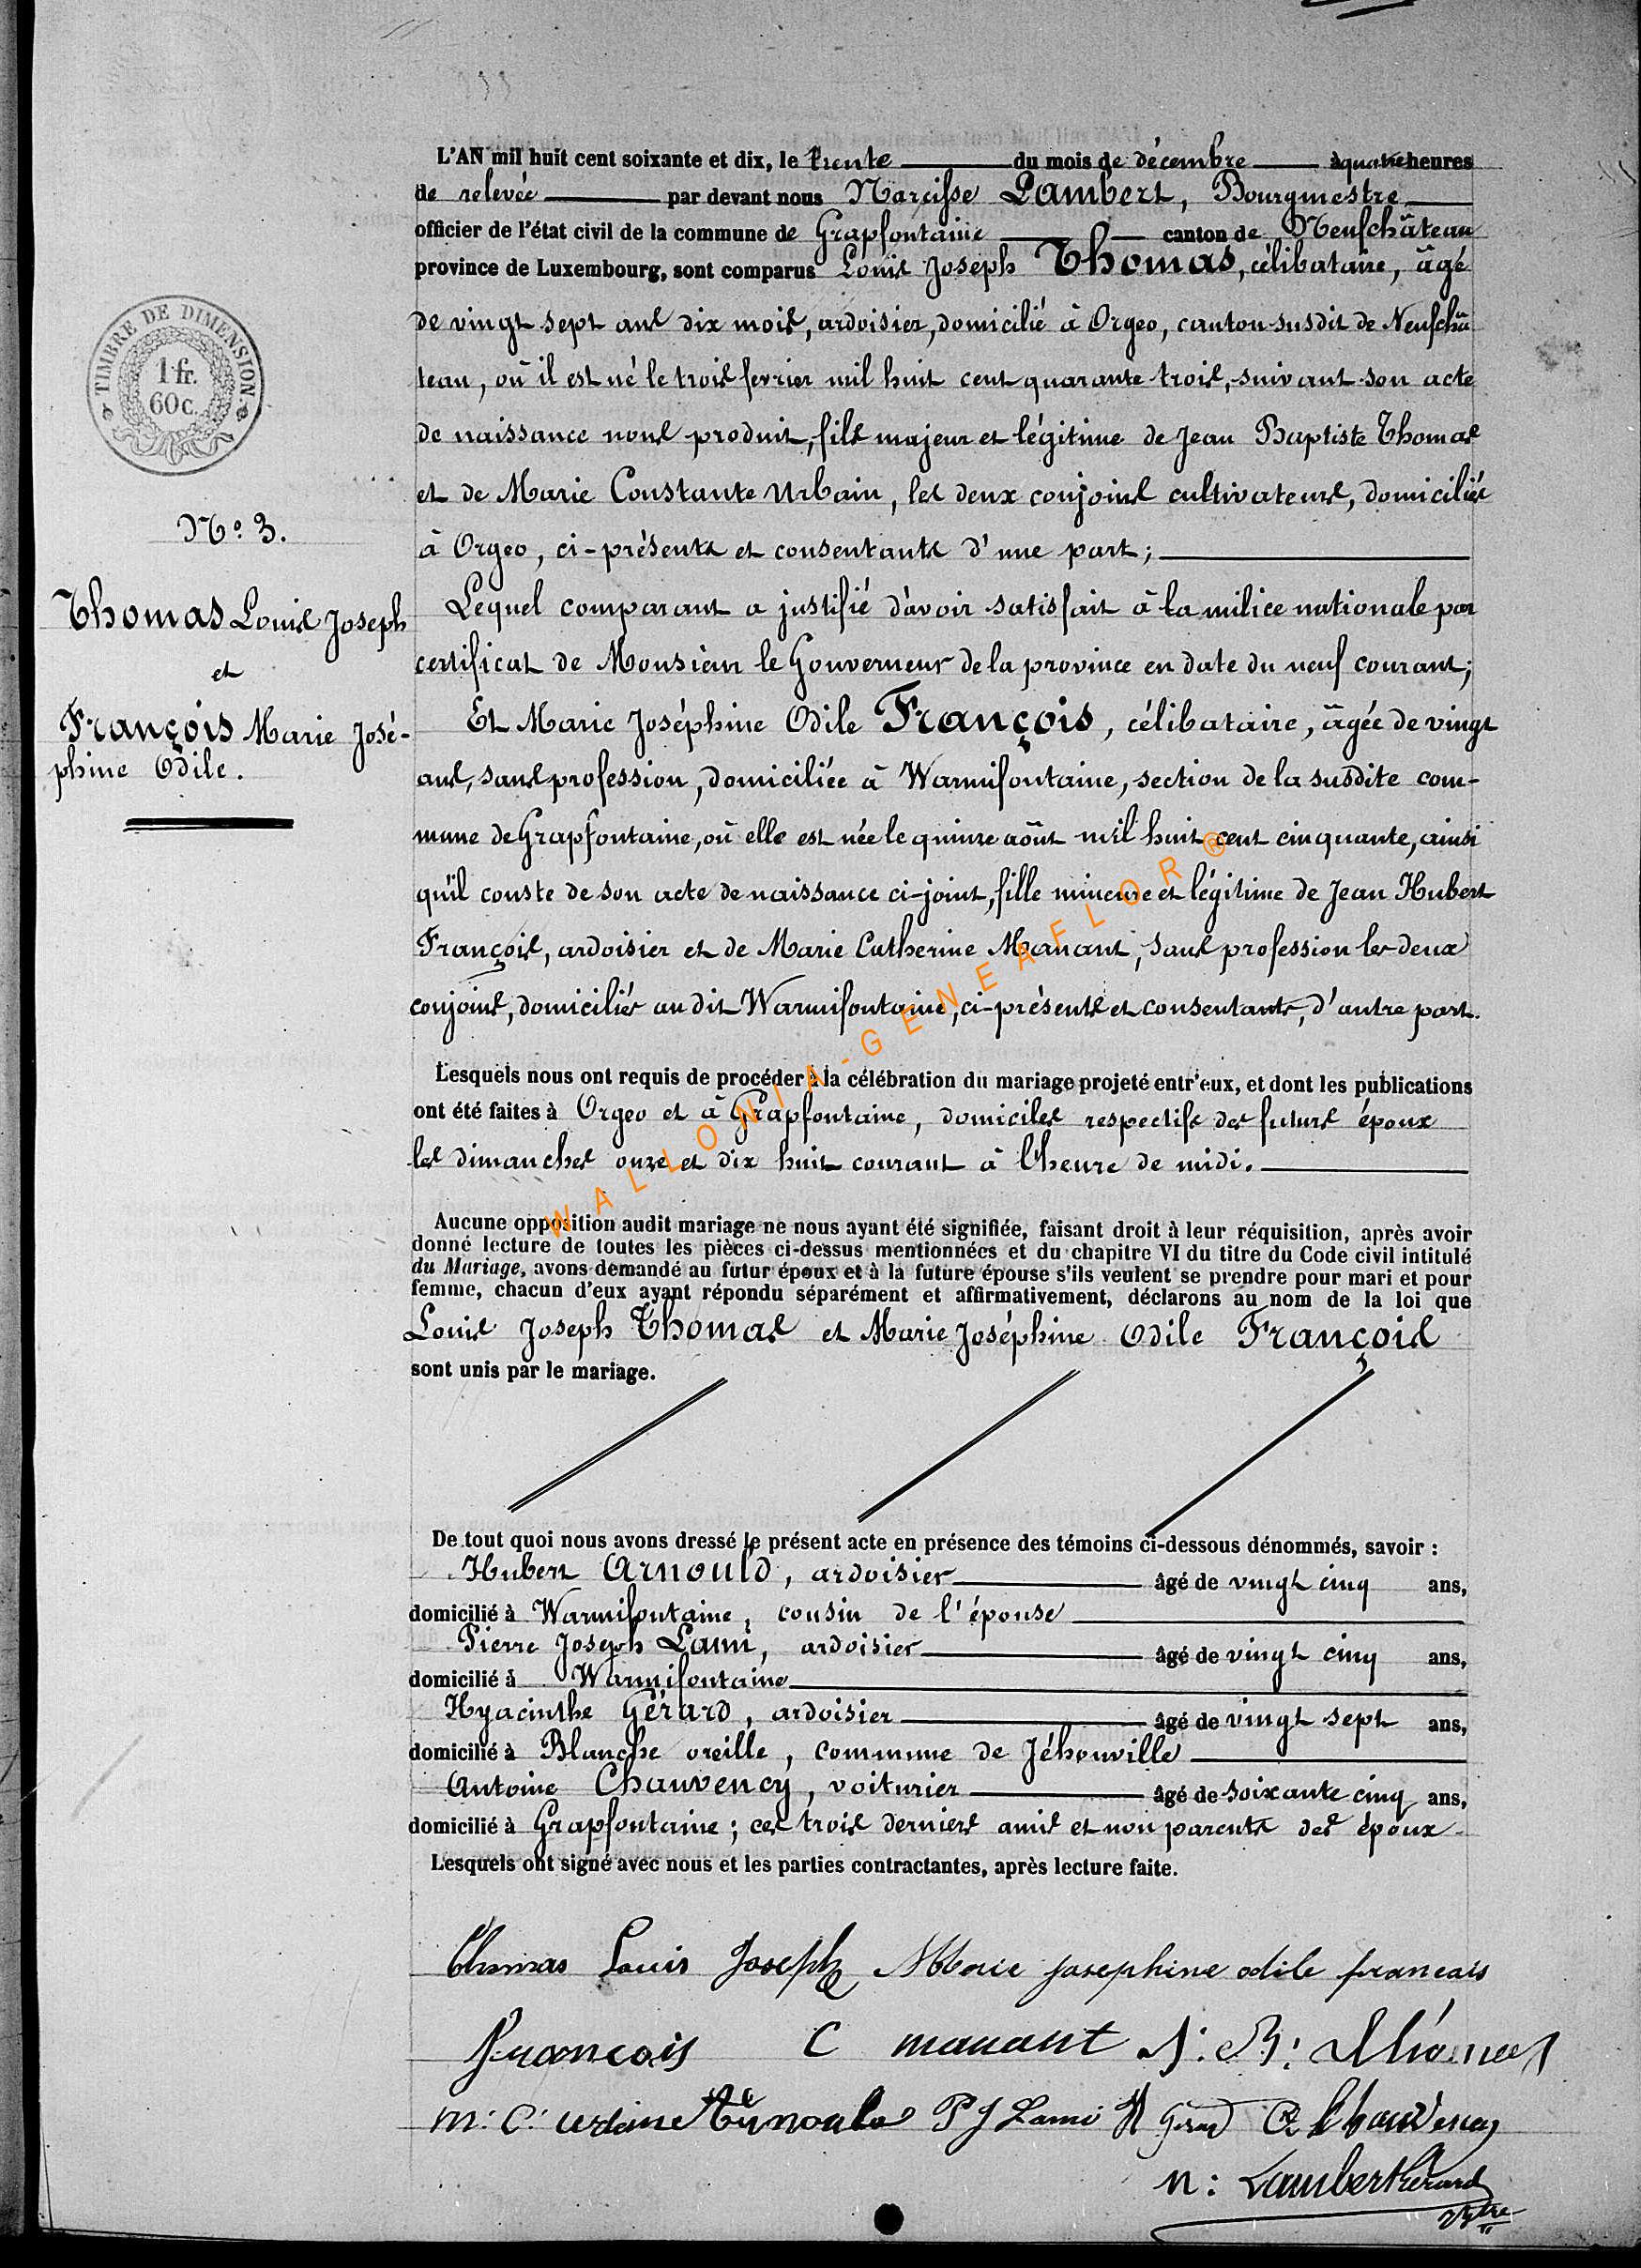 L'AN mil huit cent soixante et dix, le trente du mois de décembre à quatre heures
de relevée par devant nous Narcisse Lambert, Bourgmestre
officier de l'état civil de la commune de Grapfontaine canton de Neufchâteau
province de Luxembourg, sont comparus Louis Joseph Thomas, célibataire, âgé
de vingt sept ans dix mois, ardoisier, domicilié à Orgeo, canton susdit de Neufchâ
teau, où il est né le trois fevrier mil huit cent quarante trois, suivant son acte
de naissance nous produit, fils majeur et légitime de Jean Baptiste Thomas
et de Marie Constante Urbain, les deux conjoins cultivateurs, domiciliés
à Orgeo, ci-présents et consentants d'une part;
TIMBRE DE DIMENSION
1 fr.
60 c.
N° 3.
Thomas Louis Joseph
et
François Marie José-
phine Odile.
Lequel comparant a justifié d'avoir satisfait à la milice nationale par
certificat de Monsieur le Gouverneur de la province en date du neuf courant;
Et Marie Joséphine Odile François, célibataire, âgée de vingt
ans, sans profession, domiciliée à Warmifontaine, section de la susdite com-
mune de Grapfontaine, où elle est née le quinze août mil huit cent cinquante, ainsi
qu'il conste de son acte de naissance ci-joint, fille mineure et légitime de Jean Hubert
François, ardoisier et de Marie Catherine Manant, sans profession les deux
conjoins, domiciliés au dit Warmifontaine, ci-présents et consentants, d'autre part.
Lesquels nous ont requis de procéder à la célébration du mariage projeté entr'eux, et dont les publications
ont été faites à Orgeo et à Grapfontaine, domiciles respectifs des futurs époux
les dimanches onze et dix huit courant à l'heure de midi.
WALLONIA-GENEAFLOR®
Aucune opposition audit mariage ne nous ayant été signifiée, faisant droit à leur réquisition, après avoir
donné lecture de toutes les pièces ci-dessus mentionnées et du chapitre VI du titre du Code civil intitulé
du Mariage, avons demandé au futur époux et à la future épouse s'ils veulent se prendre pour mari et pour
femme, chacun d'eux ayant répondu séparément et affirmativement, déclarons au nom de la loi que
Louis Joseph Thomas et Marie Joséphine Odile François
sont unis par le mariage.
De tout quoi nous avons dressé le présent acte en présence des témoins ci-dessous dénommés, savoir :
Hubert Arnould, ardoisier âgé de vingt cinq ans,
domicilié à Warmifontaine, cousin de l'épouse
Pierre Joseph Lami, ardoisier âgé de vingt cinq ans,
domicilié à Warmifontaine
Hyacinthe Gérard, ardoisier âgé de vingt sept ans,
domicilié à Blanche oreille, commune de Jéhonville
Antoine Chauvency, voiturier âgé de soixante cinq ans,
domicilié à Grapfontaine; ces trois derniers amis et non parents des époux
Lesquels ont signé avec nous et les parties contractantes, après lecture faite.
Thomas Louis Joseph Marie josephine odile francais
francois C manant J: B: Thomas
m: C: urbaine Arnould P J Lami H Gerard A Chauvency
N: Lambert Gérard